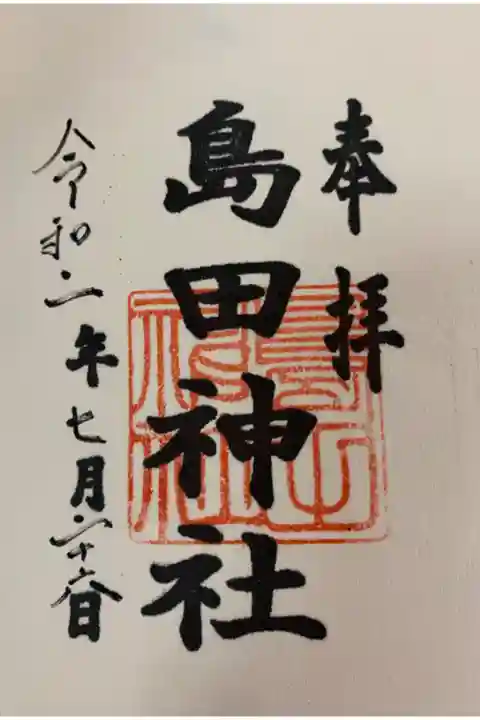 奉拝
島田神社
令和二年七月二十六日